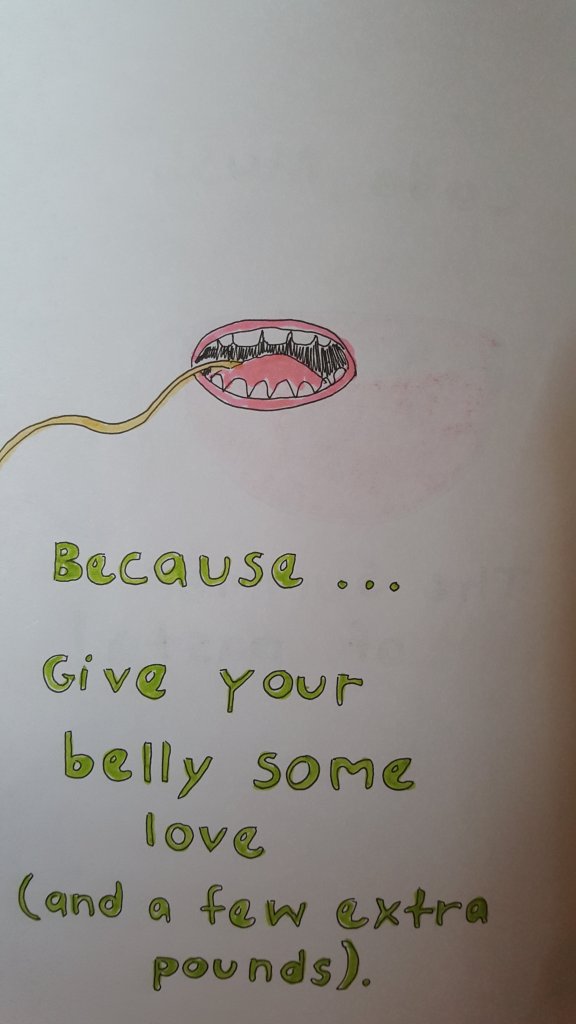 Because ...
Give your
belly some
love
(and a few extra
pounds).